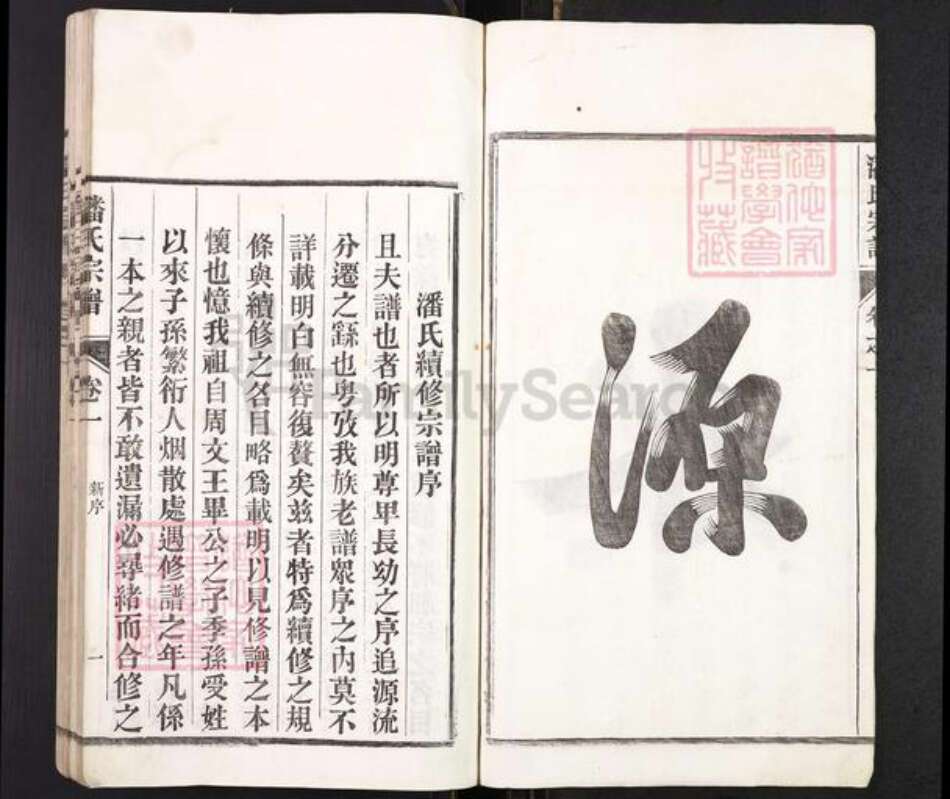 源
潘氏宗譜
猶他家
譜學會
收藏
潘氏續修宗譜序
且夫譜也者所以明尊卑長幼之序追源流
分遷之繇也粤攷我族老譜眾序之內莫不
詳載明白無容復贅矣茲者特為續修之規
條與續修之名目略為載明以見修譜之本
懷也憶我祖自周文王畢公之子季孫受姓
以來子孫繁衍人烟散處遇修譜之年凡係
一本之親者皆不敢遺漏必尋緒而合修之
潘氏宗譜
卷一
新序
一
FamilySearch